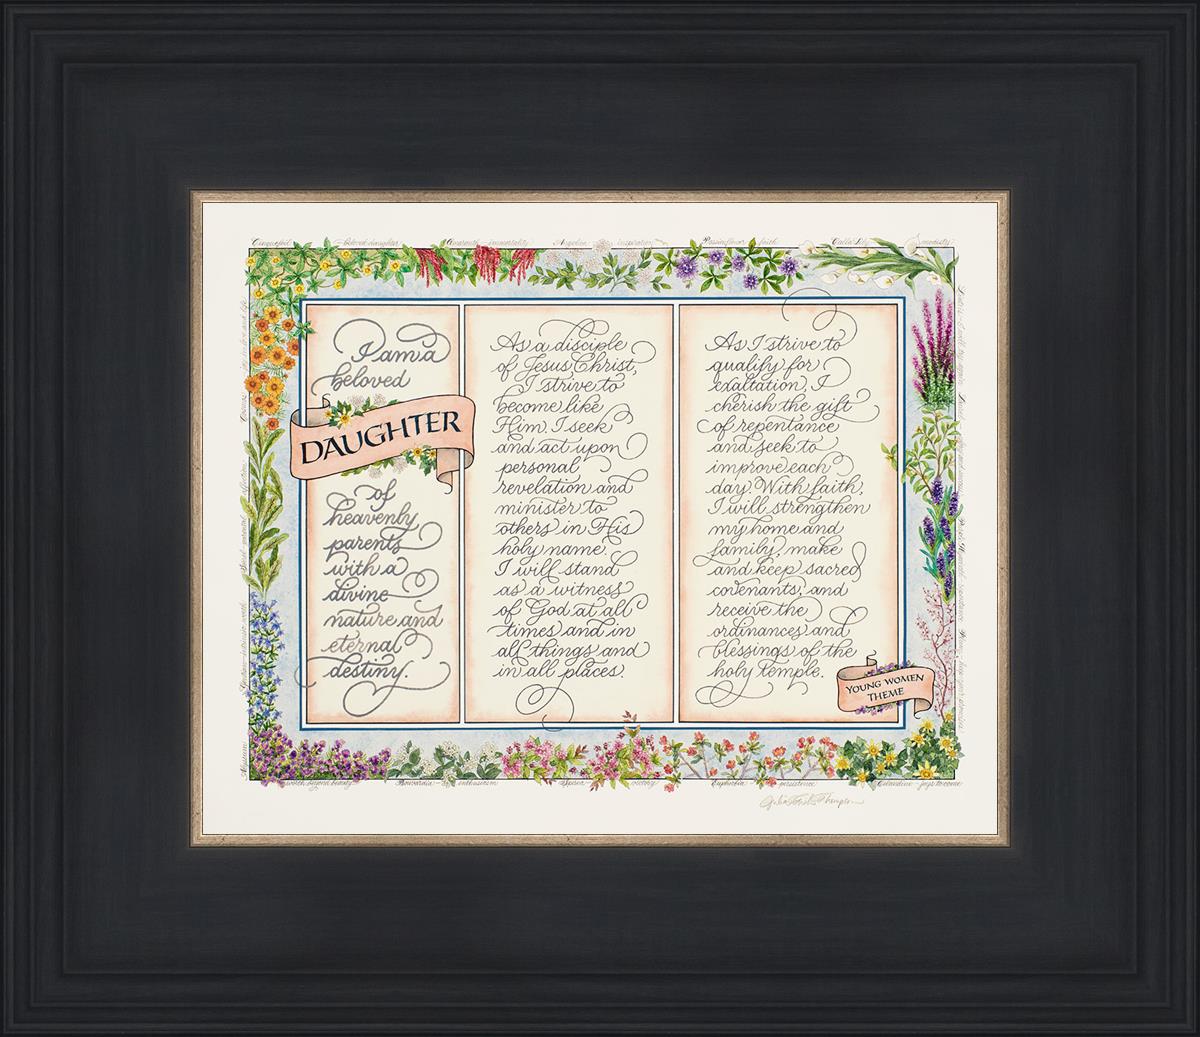 Cinquefoil – beloved daughter Amaranth – immortality Angelica – inspiration Passionflower – faith Calla Lily – modesty
I am a
beloved
DAUGHTER
of
heavenly
parents
with a
divine
nature and
eternal
destiny.
As a disciple
of Jesus Christ,
I strive to
become like
Him. I seek
and act upon
personal
revelation and
minister to
others in His
holy name.
I will stand
as a witness
of God at all
times and in
all things and
in all places.
As I strive to
qualify for
exaltation, I
cherish the gift
of repentance
and seek to
improve each
day. With faith,
I will strengthen
my home and
family, make
and keep sacred
covenants, and
receive the
ordinances and
blessings of the
holy temple.
YOUNG WOMEN
THEME
Alyssum worth beyond beauty Bouvardia – enthusiasm Spirea – victory Euphorbia – persistence Celandine – joys to come